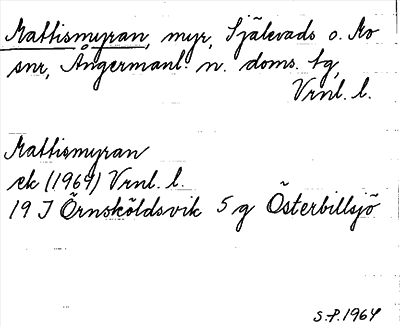 Mattismyran, myr, Själevads o. Mo
snr, Ångermanl. n. doms. tg,
Vrnl. l.
Mattismyran
ek (1964) Vrnl. l.
19 I Örnsköldsvik 5 g Österbillsjö
S.P. 1964